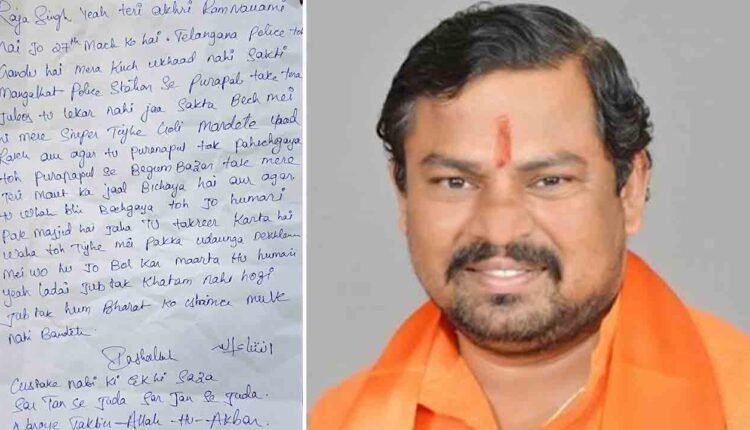 Raja Singh Yeah teri akhri Ramnavami
hai Jo 27th Mach Ko hai. Telangana Police toh
Gandu hai mera Kuch ukhaad nahi Sakti
Mangalhat Police Station Se Purapul take tera
Juloos tu lekar nahi jaa Sakta Bech mei
hi mere Sniper Tejhe Goli Mardete yaad
Rakh aur agar tu Puranapul tak Pahuchgaya
toh Purapapul Se Begum Bazar take mere
Teri Maut Ka Jaal Bichaya hai aur agar
tu whah bhi Bachgaya toh Jo humari
Pak Masjid hai Jaha Tu takreer Karta hai
waha toh Tejhe mei Pakka udaunga Dekhlena
Mei wo hu Jo Bol kar maarta Hu humari
Yeah Ladai Jub tak Khatam nahi hogi
Jub tak hum Bharat Ko mulk
nahi Bandete.
انشاءاللہ
Gustake nabi Ki Ek hi Saza
Sar Tan Se Juda Sar Jan Se Juda.
Takbir - Allah - Hu - Akbar.